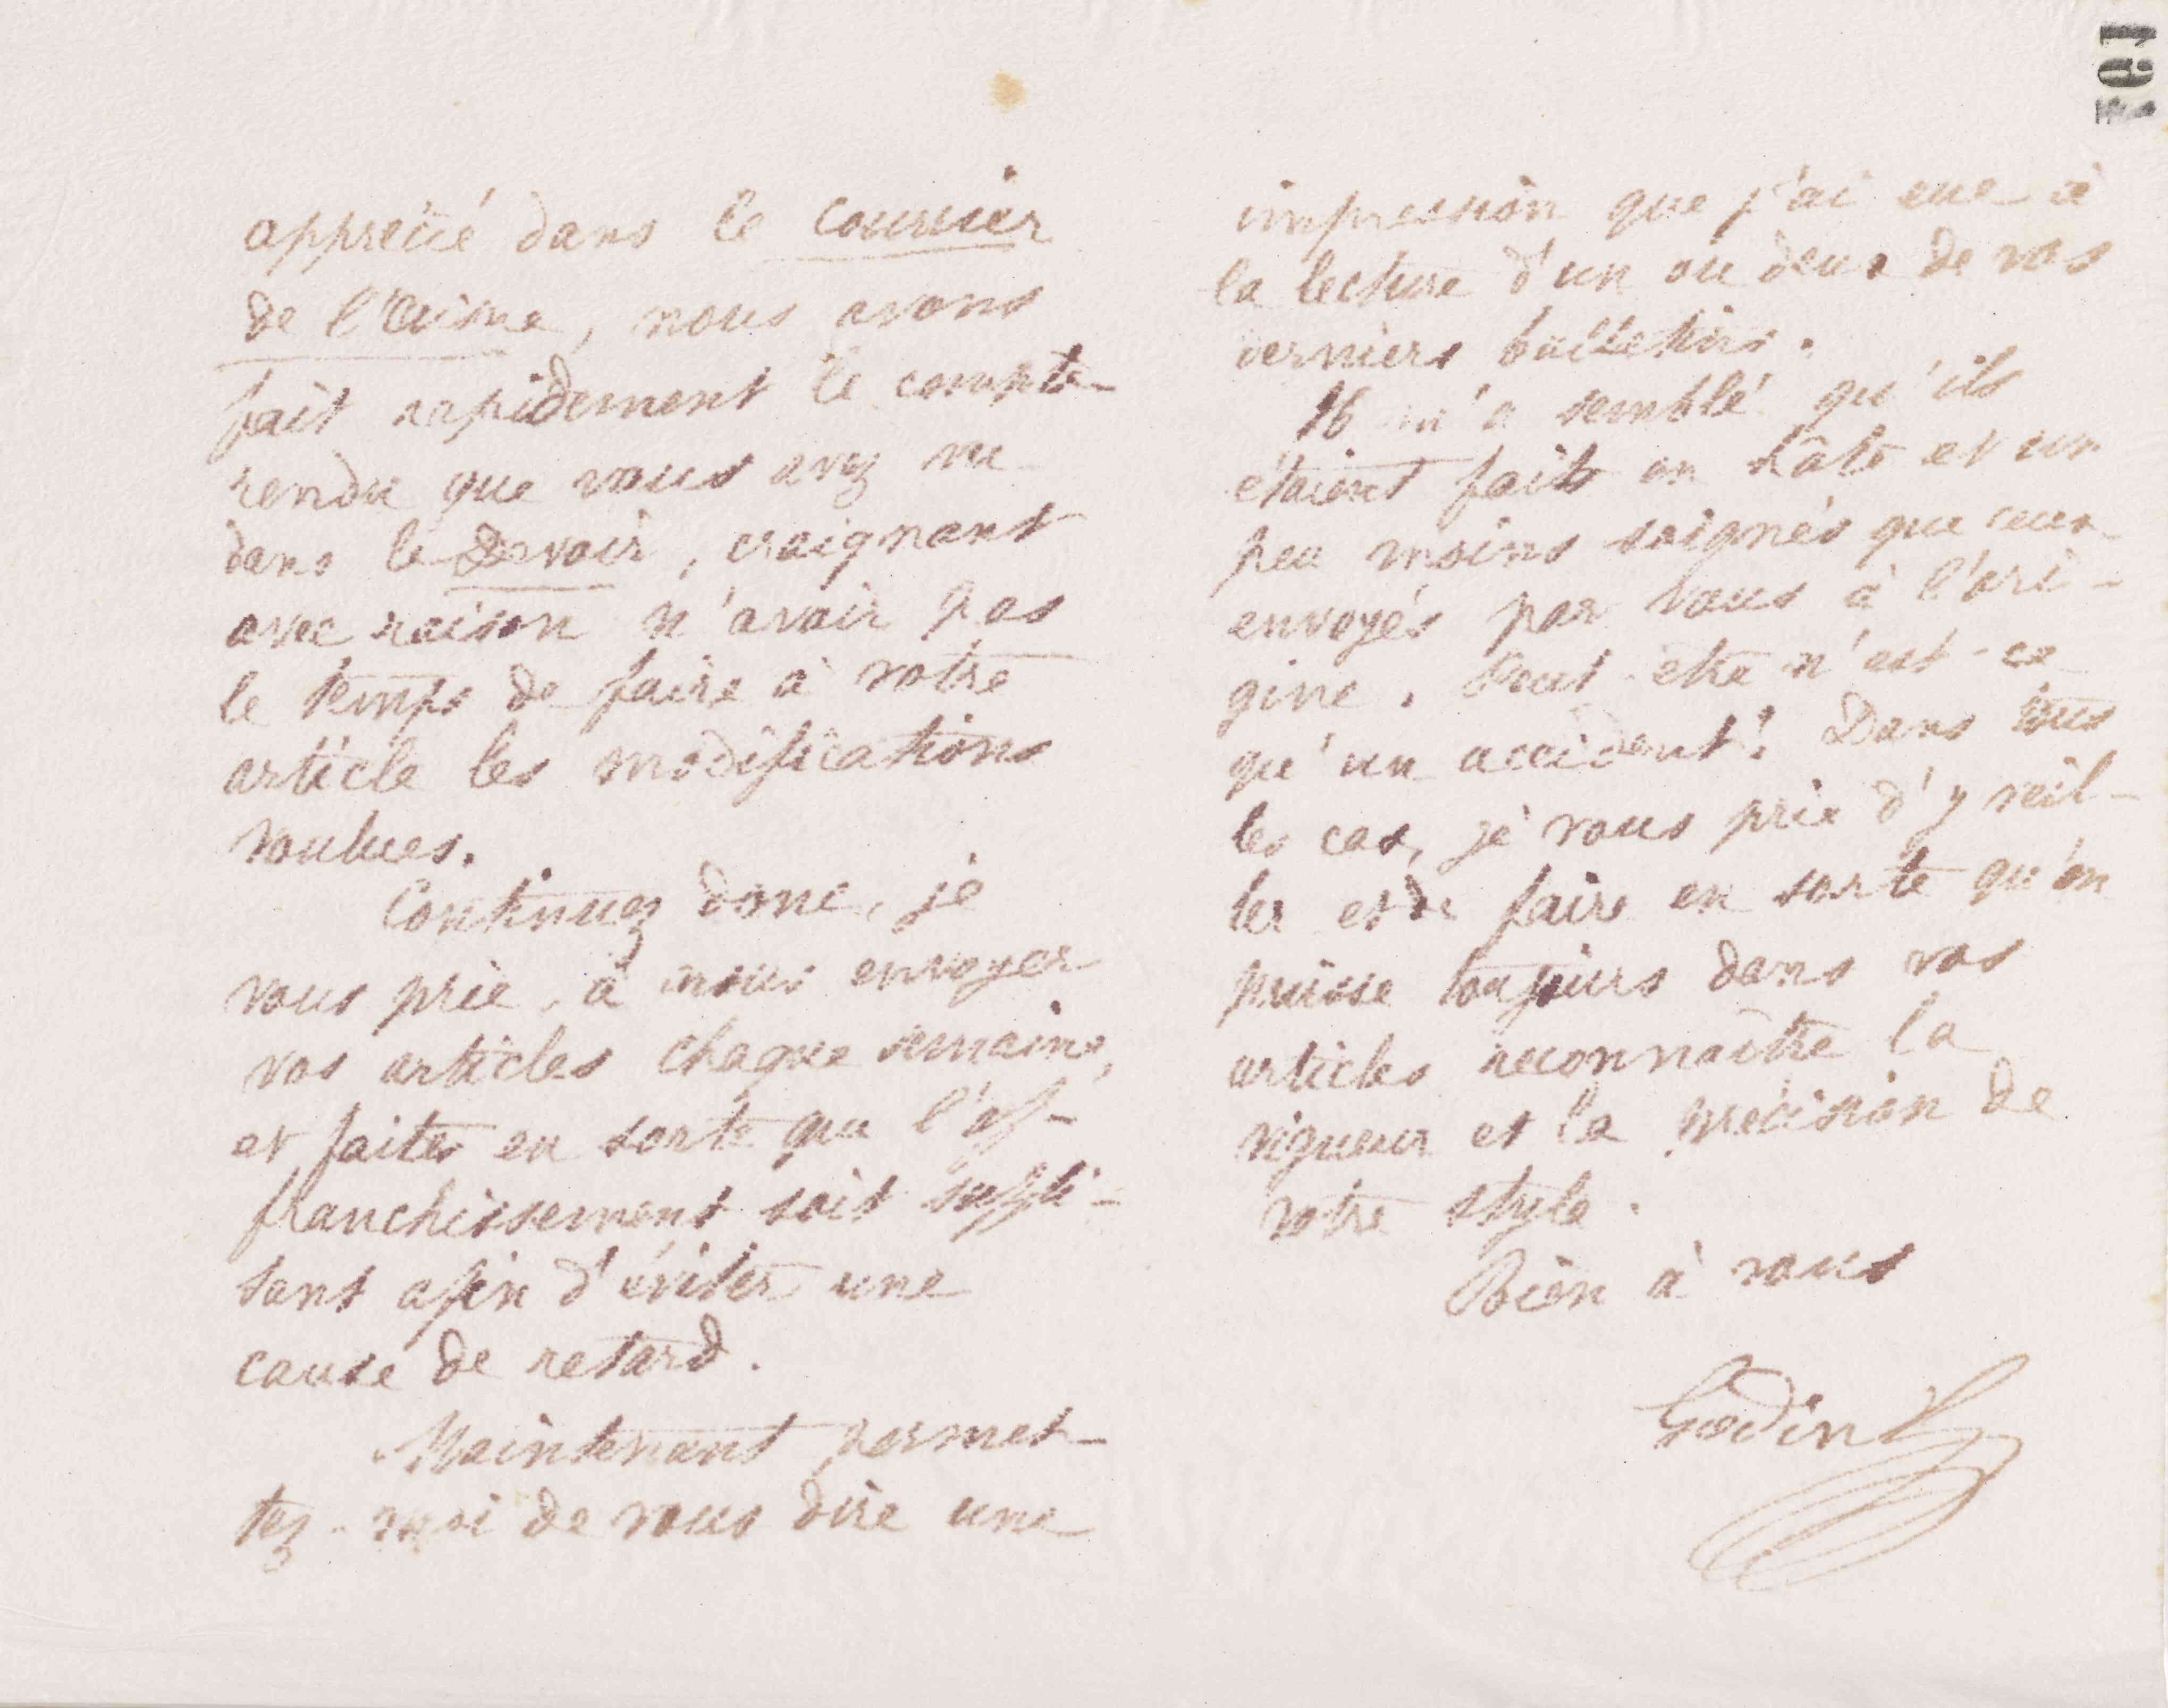 apprécié dans le courrier
de l'Aisne, nous avons
fait rapidement le compte-
rendu que vous avez vu
dans le Devoir, craignant
avec raison n'avoir pas
le temps de faire à votre
article les modifications
voulues.
Continuez donc, je
vous prie, à nous envoyer
vos articles chaque semaine,
et faites en sorte que l'af-
franchissement soit suffi-
sant afin d'éviter une
cause de retard.
Maintenant permet-
tez-moi de vous dire une
impression que j'ai eue à
la lecture d'un ou deux de vos
derniers bulletins.
Il m'a semblé qu'ils
étaient faits en hâte et un
peu moins soignés que ceux
envoyés par vous à l'ori-
gine. Peut-être n'est-ce
qu'un accident! Dans tous
les cas, je vous prie d'y veil-
ler et de faire en sorte qu'on
puisse toujours dans vos
articles reconnaître la
vigueur et la précision de
votre style.
Bien à vous
Godin